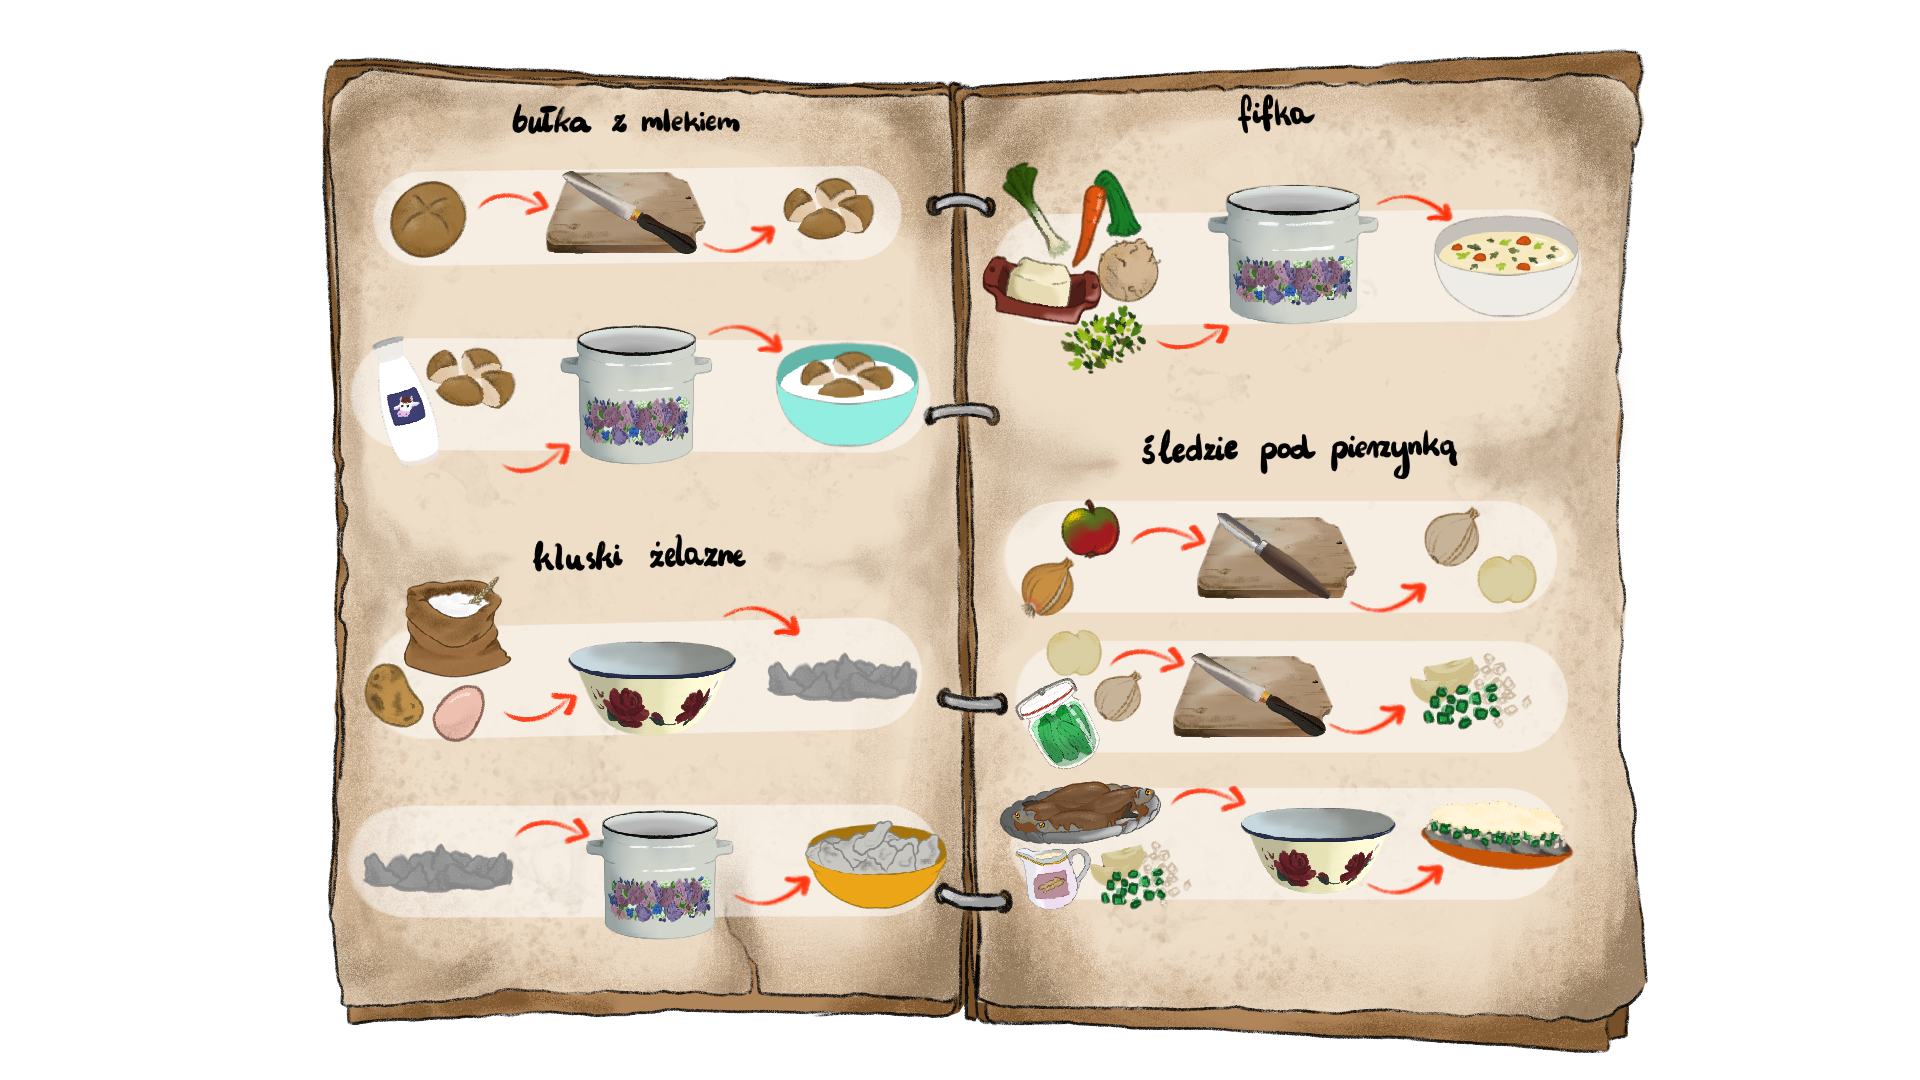 bułka z mlekiem
kluski żelazne
fifka
śledzie pod pierzynką